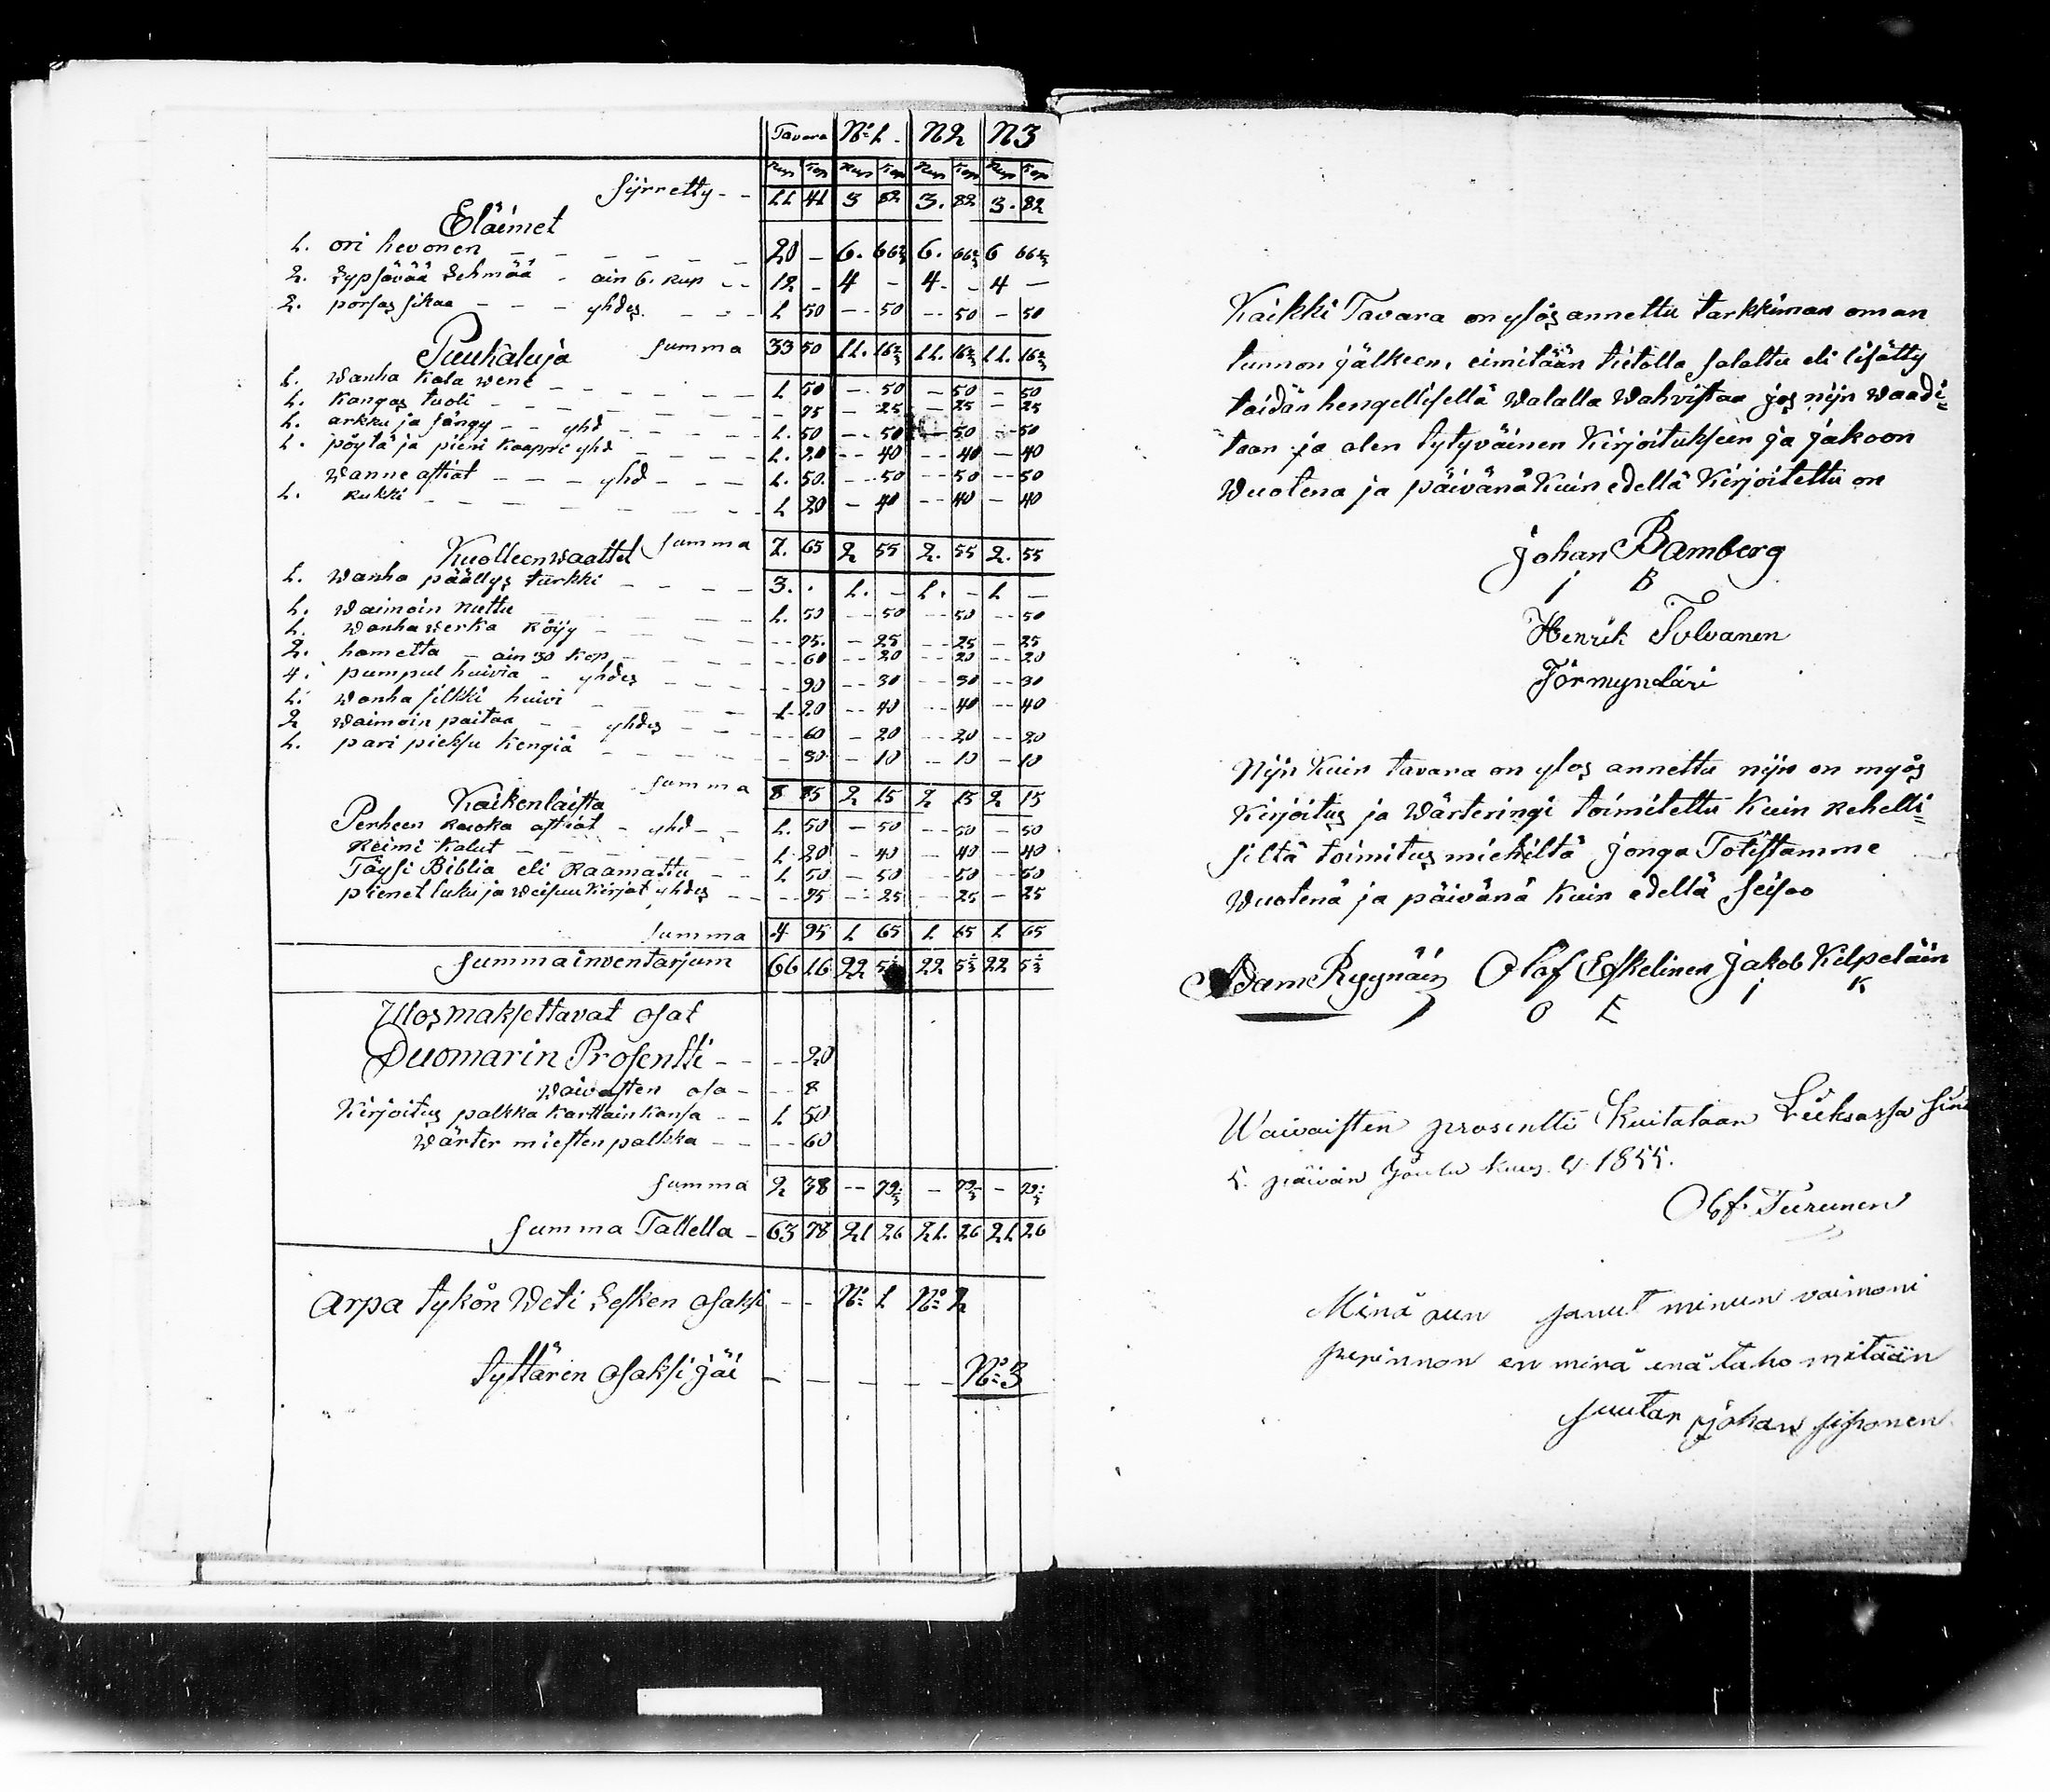 Tavara N:o 1. N 2 N 3
Rup Kop Rup Kop Rup Kop Rup Kop
Siirretty - - 11 41 3 82 3. 82 3. 82
Eläimet
1. ori hevonen - - - - - 20 - 6. 66⅔ 6. 66⅔ 6 66⅔
2. Lypsävää Lehmää - ain 6. rup - - 12 - 4 - 4 - - 4 -
2. porsas sikaa - - - yhdes - - - 1 50 - - 50 - - 50 - 50
Summa 33 50 11. 16⅔ 11. 16⅔ 11. 16⅔
Puukaluja
1. Wanha Kala wene - - - - - 1 50 - 50 - 50 - 50
1. Kangas tuoli - - - - - - 75 - 25 - 25 - 25
1. arkku ja sängy - - yhd - - - 1. 50 - - 50 - 50 - 50
1. pöytä ja pieni Kaappi yhd - - - - 1. 20 - - 40 - - 40 - 40
Wanne astiat - - - yhd - - - 1. 50. - - 50 - - 50 - - 50
1. Rukki - - - - - - - 1 20 - 40 - - 40 - 40
Summa 7. 65 2 55 2. 55 2. 55
Kuolleen waattet
1. Wanha päällys turkki - - - - 3. . 1. - 1. - 1 -
1. Waimoin nuttu - - - - 1. 50 - - 50 - - 50 - - 50
1. Wanha verka röijy - - - - - - 75. - 25 - - 25 - 25
2. hametta - ain 30 Kop - - - - - 60 - - 20 - - 20 - - 20
4. pumpul huivia - yhdes - - - - 90 - - 30 - - 30 - - 30
1. Wanha silkki huivi - - - - 1 20 - - 40 - - 40 - - 40
2 Waimoin paitaa - - yhdes - - - - 60 - 20 - - 20 - - 20
1. pari pieksu Kengiä - - - - - - 30 - 10 - 10 - 10
Summa 8 85 2 15 2 15 2 15
Kaikenlaista
Perheen Ruoka astiat - yhd - - 1. 50 - 50 - - 50 - 50
Reimi Kalut - - - - - 1 20 - 40 - 40 - 40
Täysi Biblia eli Raamattu - - 1 50 - 50 - - 50 - - 50
pienet luku ja weisuukirjat yhdes - - - - 75 - - 25 - - 25 - 25
Summa 4 95 1 65 1 65 1 65
Summa inventarjum 66 16 22 22 5⅓ 22 5⅓
Ulosmaksettavat osat
Duomarin Prosentti - - - - 20
Waivasten osa - - - 8
Kirjoitus palkka Karttain kansa - - 1 50
Wärter miesten palkka - - - - 60
Summa 2 38 - - 79⅓ - 79⅓ - 79⅓
Summa Tallella - 63 78 21 26 21. 26 21 26
Arpa tykön Weti Lesken osaksi - - N:o 1 N:o 2
tyttären osaksi jäi - - - - - - N:o 3
Kaikki Tavara on ylös annettu tarkkiman oman
tunnon jälkeen, eimitään tietolla salattu eli lisätty
taidan hengellisellä Walalla Wahvistaa jos nijn waadi=
taan ja olen tytyväinen Kirjoitukseen ja jakoon
Wuotena ja päivänä Kuin edellä Kirjoitettu on
Johan Bamberg
I B
Henrik Tolvanen
Förmyndäri
Nijn Kuin tavara on ylos annettu nijn on myös
Kirjoitus ja Wärteringi toimitettu Kuin rehelli=
siltä toimitus miehiltä jonga Totistamme
Wuotenä ja päivänä Kuin edellä seisoo
Adam Ryynäin Olof Eskelinen Jakob Kilpeläin
O E I K
Waivaisten prosentti Kuitataan Lieksassa sinä
5. päivän Joulu kuus. W. 1855.
Olof Turunen
Minä sanut minun vaimoni
perinnon en minä enä taho mitään
Suutar Johan Sissonen